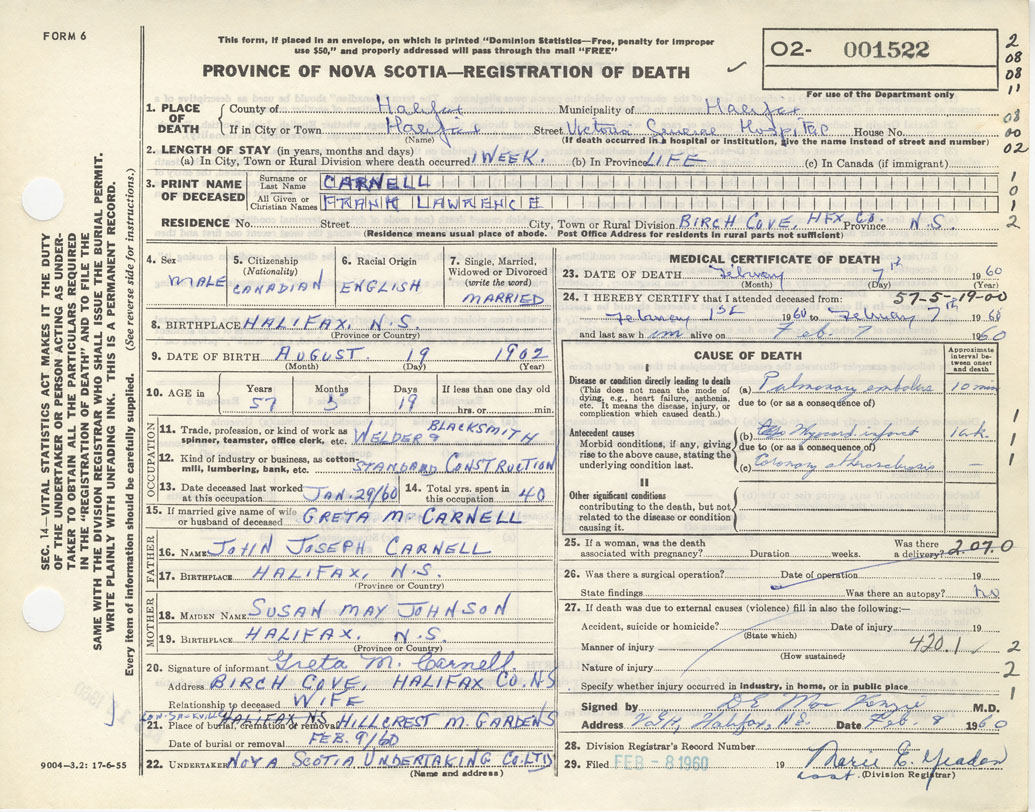 FORM 6
This form, if placed in an envelope, on which is printed "Dominion Statistics—Free, penalty for improper
use $50," and properly addressed will pass through the mail "FREE"
PROVINCE OF NOVA SCOTIA—REGISTRATION OF DEATH
02- 001522
For use of the Department only
2
08
08
11
08
00
02
1. PLACE OF DEATH County of Halifax Municipality of Halifax
If in City or Town Halifax Street Victoria General Hospital House No.
(Name) (If death occurred in a hospital or institution, give the name instead of street and number)
2. LENGTH OF STAY (in years, months and days)
(a) In City, Town or Rural Division where death occurred 1 WEEK. (b) In Province LIFE (c) In Canada (if immigrant)
3. PRINT NAME OF DECEASED Surname or Last Name CARNELL
All Given or Christian Names FRANK LAWRENCE
1
0
1
2
RESIDENCE No. Street City, Town or Rural Division BIRCH COVE, HFX. Co. Province N.S.
(Residence means usual place of abode. Post Office Address for residents in rural parts not sufficient)
SEC. 14—VITAL STATISTICS ACT MAKES IT THE DUTY
OF THE UNDERTAKER OR PERSON ACTING AS UNDER-
TAKER TO OBTAIN ALL THE PARTICULARS REQUIRED
IN THE "REGISTRATION OF DEATH" AND TO FILE THE
SAME WITH THE DIVISION REGISTRAR WHO SHALL ISSUE THE BURIAL PERMIT.
WRITE PLAINLY WITH UNFADING INK. THIS IS A PERMANENT RECORD.
Every item of information should be carefully supplied. (See reverse side for instructions.)
4. Sex MALE
5. Citizenship (Nationality) CANADIAN
6. Racial Origin ENGLISH
7. Single, Married, Widowed or Divorced (write the word) MARRIED
8. BIRTHPLACE HALIFAX, N.S.
(Province or Country)
9. DATE OF BIRTH AUGUST. 19 1902
(Month) (Day) (Year)
10. AGE in Years 57 Months 5 Days 19 If less than one day old hrs. or min.
OCCUPATION
11. Trade, profession, or kind of work as spinner, teamster, office clerk, etc. WELDER & BLACKSMITH
12. Kind of industry or business, as cotton-mill, lumbering, bank, etc. STANDARD CONSTRUCTION
13. Date deceased last worked at this occupation JAN. 29/60 14. Total yrs. spent in this occupation 40
15. If married give name of wife or husband of deceased GRETA M. CARNELL
FATHER
16. NAME JOHN JOSEPH CARNELL
17. BIRTHPLACE HALIFAX, N.S.
(Province or Country)
MOTHER
18. MAIDEN NAME SUSAN MAY JOHNSON
19. BIRTHPLACE HALIFAX, N.S.
(Province or Country)
20. Signature of informant Greta M. Carnell
Address BIRCH COVE, HALIFAX CO. NS
Relationship to deceased WIFE
21. Place of burial, cremation or removal HALIFAX NS HILLCREST M. GARDENS
Date of burial or removal FEB. 9/60
22. UNDERTAKER NOVA SCOTIA UNDERTAKING CO. LTD
(Name and address)
9004—3.2: 17-6-55
MEDICAL CERTIFICATE OF DEATH
23. DATE OF DEATH February 7th 1960
(Month) (Day) (Year)
24. I HEREBY CERTIFY that I attended deceased from: 57-5-19-00
February 1st 1960 to February 7th 1960
and last saw him alive on Feb 7 1960
CAUSE OF DEATH
Approximate interval between onset and death
I
Disease or condition directly leading to death (a) Pulmonary embolus 10 min
(This does not mean the mode of dying, e.g., heart failure, asthenia, etc. It means the disease, injury, or complication which caused death.)
due to (or as a consequence of)
Antecedent causes (b) Myocard infarct 1 wk. 1
Morbid conditions, if any, giving rise to the above cause, stating the underlying condition last.
due to (or as a consequence of) 1
(c) Coronary atherosclerosis — 1
II
Other significant conditions contributing to the death, but not related to the disease or condition causing it.
25. If a woman, was the death associated with pregnancy? Duration weeks. Was there a delivery? 2.07.0
26. Was there a surgical operation? Date of operation 19
State findings Was there an autopsy? no
27. If death was due to external causes (violence) fill in also the following:—
Accident, suicide or homicide? Date of injury 19
(State which)
Manner of injury 420.1 2
(How sustained)
Nature of injury 2
Specify whether injury occurred in industry, in home, or in public place 1
Signed by M.D.
Address V.G.H., Halifax, N.S. Date Feb. 8 1960
28. Division Registrar's Record Number
29. Filed FEB -8 1960 19 Marie E.
asst. (Division Registrar)